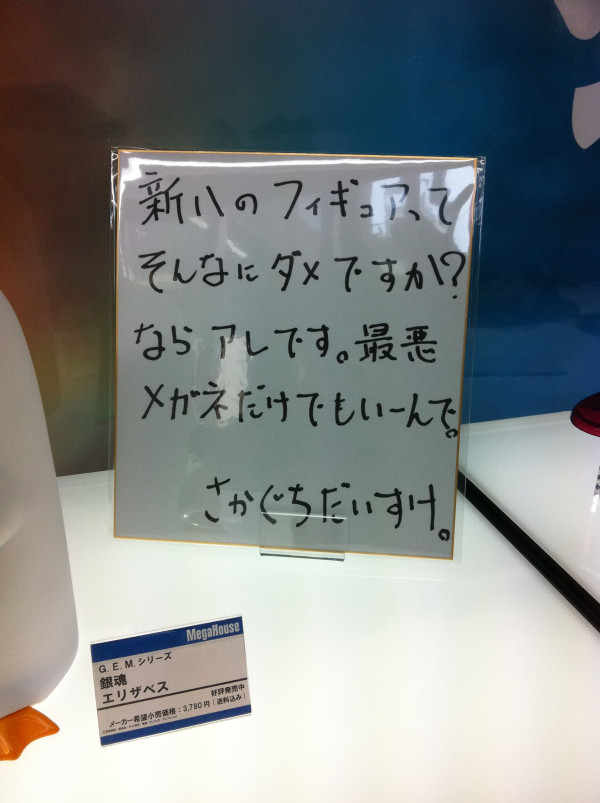 新八のフィギュア、って
そんなにダメですか?
なら アレです。最悪
メガネだけでもいーんで。
さかぐちだいすけ。
MegaHouse
G.E.M.シリーズ
銀魂
エリザベス
好評発売中
メーカー希望小売価格:3,780円(送料込み)